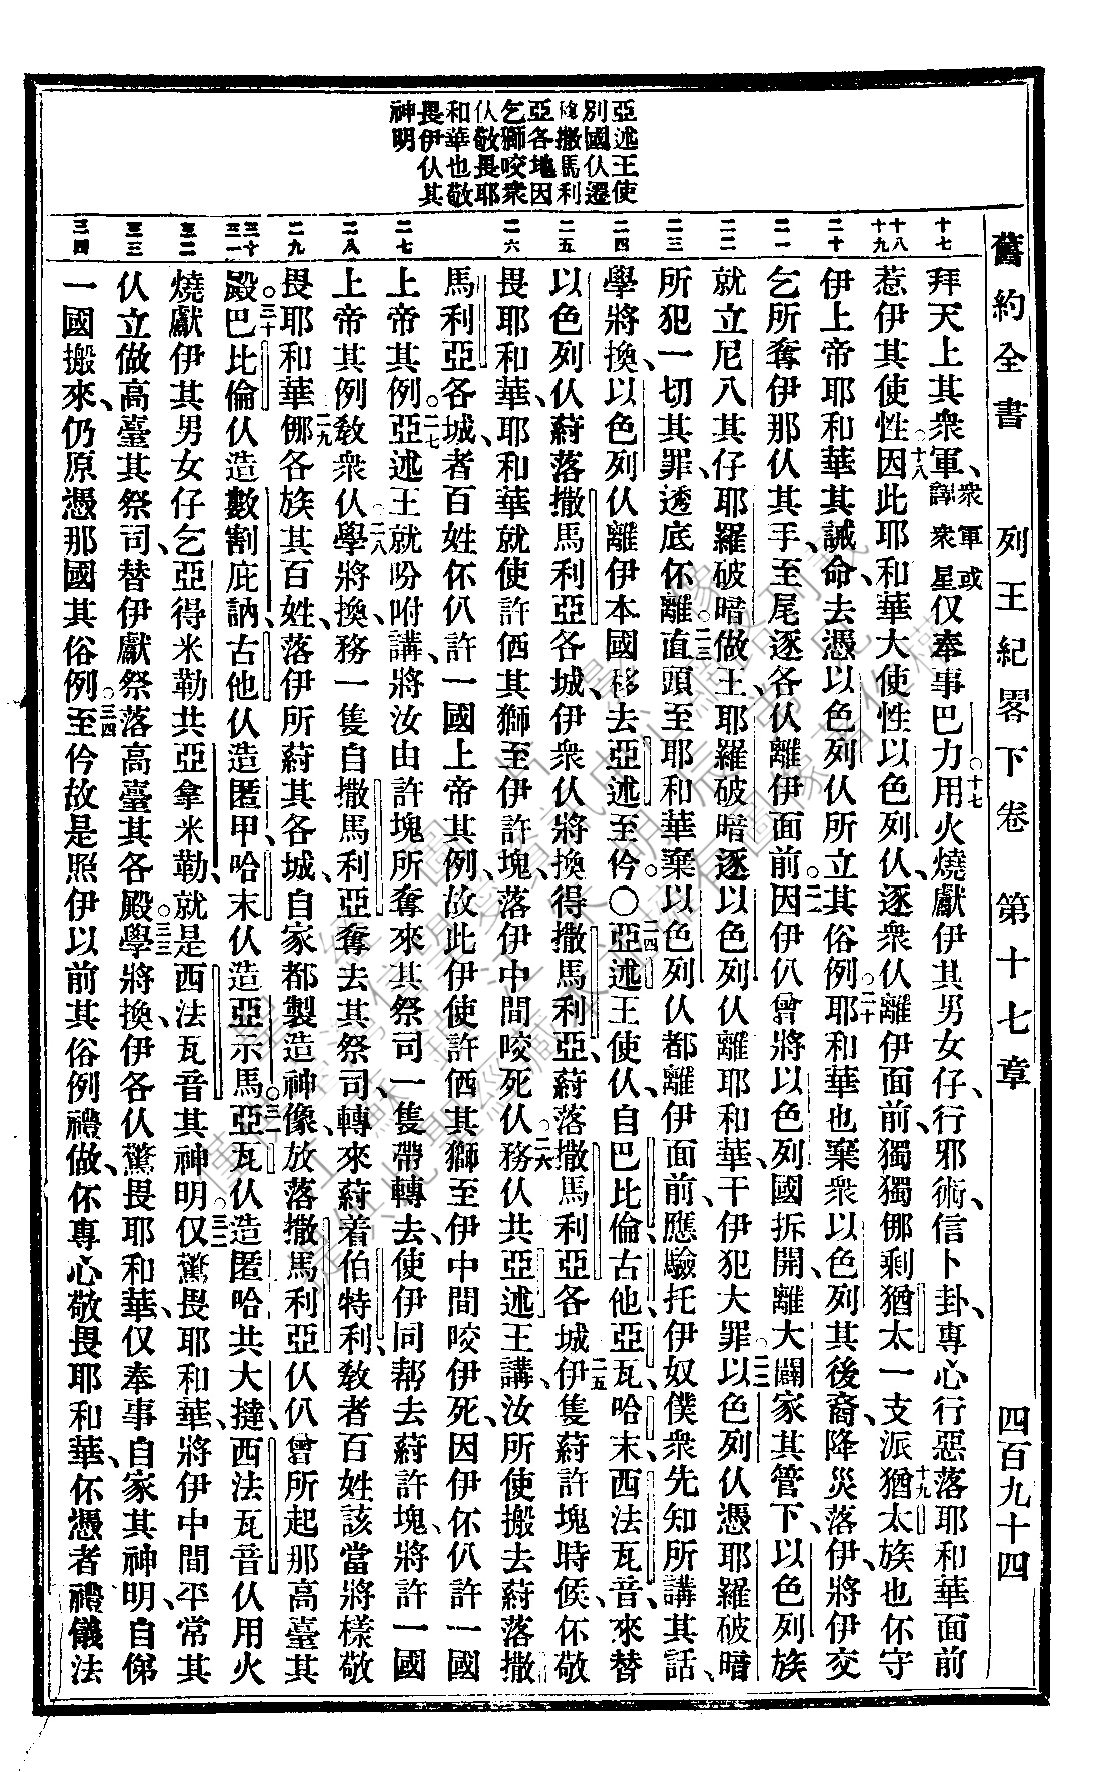 舊約全書 列王紀畧下卷 第十七章 四百九十四
亞述王使
別國仸遷
徙撒馬利
亞各地因
乞獅咬衆
仸敬畏耶
和華也敬
畏伊仸其
神明
十七
十八
十九
二十
二一
二二
二三
二四
二五
二六
二七
二八
二九
三十
三一
三二
三三
三四
拜天上其衆軍、衆軍或譯衆星仅奉事巴力○十七用火燒獻伊其男女仔、行邪術信卜卦、專心行惡落耶和華面前
惹伊其使性○十八因此耶和華大使性以色列仸、逐衆仸離伊面前、獨獨㑚剩猶太一支派○十九猶太族也伓守
伊上帝耶和華其誡命、去憑以色列仸所立其俗例○二十耶和華也棄衆以色列其後裔、降災落伊、將伊交
乞所奪伊那仸其手、至尾逐各仸離伊面前○二一因伊仈曾將以色列國拆開、離大闢家其管下、以色列族
就立尼八其仔耶羅破暗做王、耶羅破暗逐以色列仸離耶和華、干伊犯大罪○二二以色列仸憑耶羅破暗
所犯一切其罪、透底伓離○二三直頭至耶和華棄以色列仸都離伊面前、應驗托伊奴僕衆先知所講其話、
學將換、以色列仸離伊本國移去亞述至伱○○二四亞述王使仸自巴比倫、古他、亞瓦、哈末、西法瓦音、來替
以色列仸、蔚落撒馬利亞各城、伊衆仸將換得撒馬利亞、蔚落撒馬利亞各城○二五伊隻蔚許塊時候、伓敬
畏耶和華、耶和華就使許価其獅至伊許塊、落伊中間咬死仸○二六務仸共亞述王講、汝所使搬去蔚落撒
馬利亞各城、者百姓伓仈許一國上帝其例、故此伊使許価其獅至伊中間咬伊死、因伊伓仈許一國
上帝其例○二七亞述王就吩咐講、將汝由許塊所奪來其祭司、一隻帶轉去、使伊同帮去蔚許塊、將許一國
上帝其例教衆仸○二八學將換、務一隻自撒馬利亞奪去其祭司、轉來蔚着伯特利、教者百姓該當將樣敬
畏耶和華○二九㑚各族其百姓、落伊所蔚其各城、自家都製造神像、放落撒馬利亞仸仈曾所起那高臺其
殿○三十巴比倫仸造數割庇訥、古他仸造匿甲、哈末仸造亞示馬○三一亞瓦仸造匿哈共大撻、西法瓦音仸用火
燒獻伊其男女仔、乞亞得米勒共亞拿米勒、就是西法瓦音其神明○三二仅驚畏耶和華、將伊中間平常其
仸立做高臺其祭司、替伊獻祭落高臺其各殿○三三學將換、伊各仸驚畏耶和華、仅奉事自家其神明、自俤
一國搬來、仍原憑那國其俗例○三四至伱故是照伊以前其俗例禮做、伓專心敬畏耶和華、伓憑者禮儀法